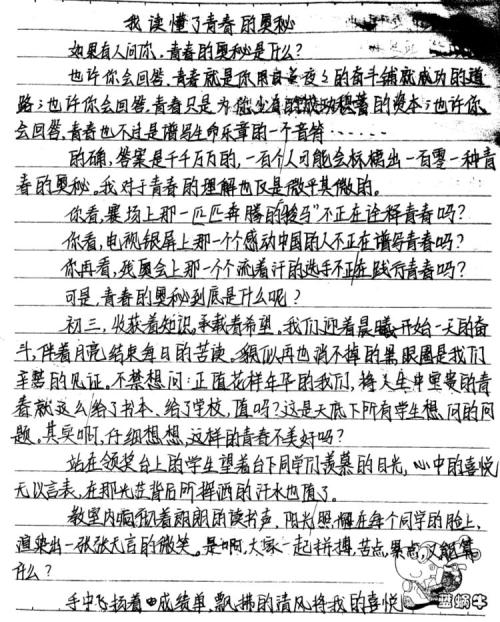 我读懂了青春的奥秘
如果有人问你,青春的奥秘是什么?
也许你会回答,青春就是你用日日夜夜的奋斗铺就成功的道
路;也许你会回答,青春只是为能业有所成功积蓄的资本;也许你
会回答,青春也不过是谱写生命乐章的一个音符······
的确,答案是千千万万的,一百个人可能会标榜出一百零一种青
春的奥秘。我对于青春的理解也仅是微乎其微的。
你看,赛场上那一匹匹奔腾的"骏马"不正在诠释青春吗?
你看,电视银屏上那一个个感动中国的人不正在谱写青春吗?
你再看,残奥会上那一个个流着汗的选手不正在践行青春吗?
可是,青春的奥秘到底是什么呢?
初三,收获着知识,承载着希望。我们迎着晨曦开始一天的奋
斗,伴着月亮结束每日的苦读。貌似再也消不掉的黑眼圈是我们
辛苦的见证。不禁想问:正值花样年华的我们,将人生中宝贵的青
春就这么给了书本、给了学校,值吗?这是天底下所有学生想问的问
题。其实啊,仔细想想,这样的青春不美好吗?
站在领奖台上的学生望着台下同学们羡慕的目光,心中的喜悦
无以言表,在那光芒背后所挥洒的汗水也值了。
教室内响彻着朗朗的读书声,阳光照耀在每个同学的脸上,
渲染出一张张无言的微笑。是啊,大家一起拼搏,苦点,累点,又能算
什么?
手中飞扬着成绩单,飘拂的清风将我的喜悦
蓝蜗牛